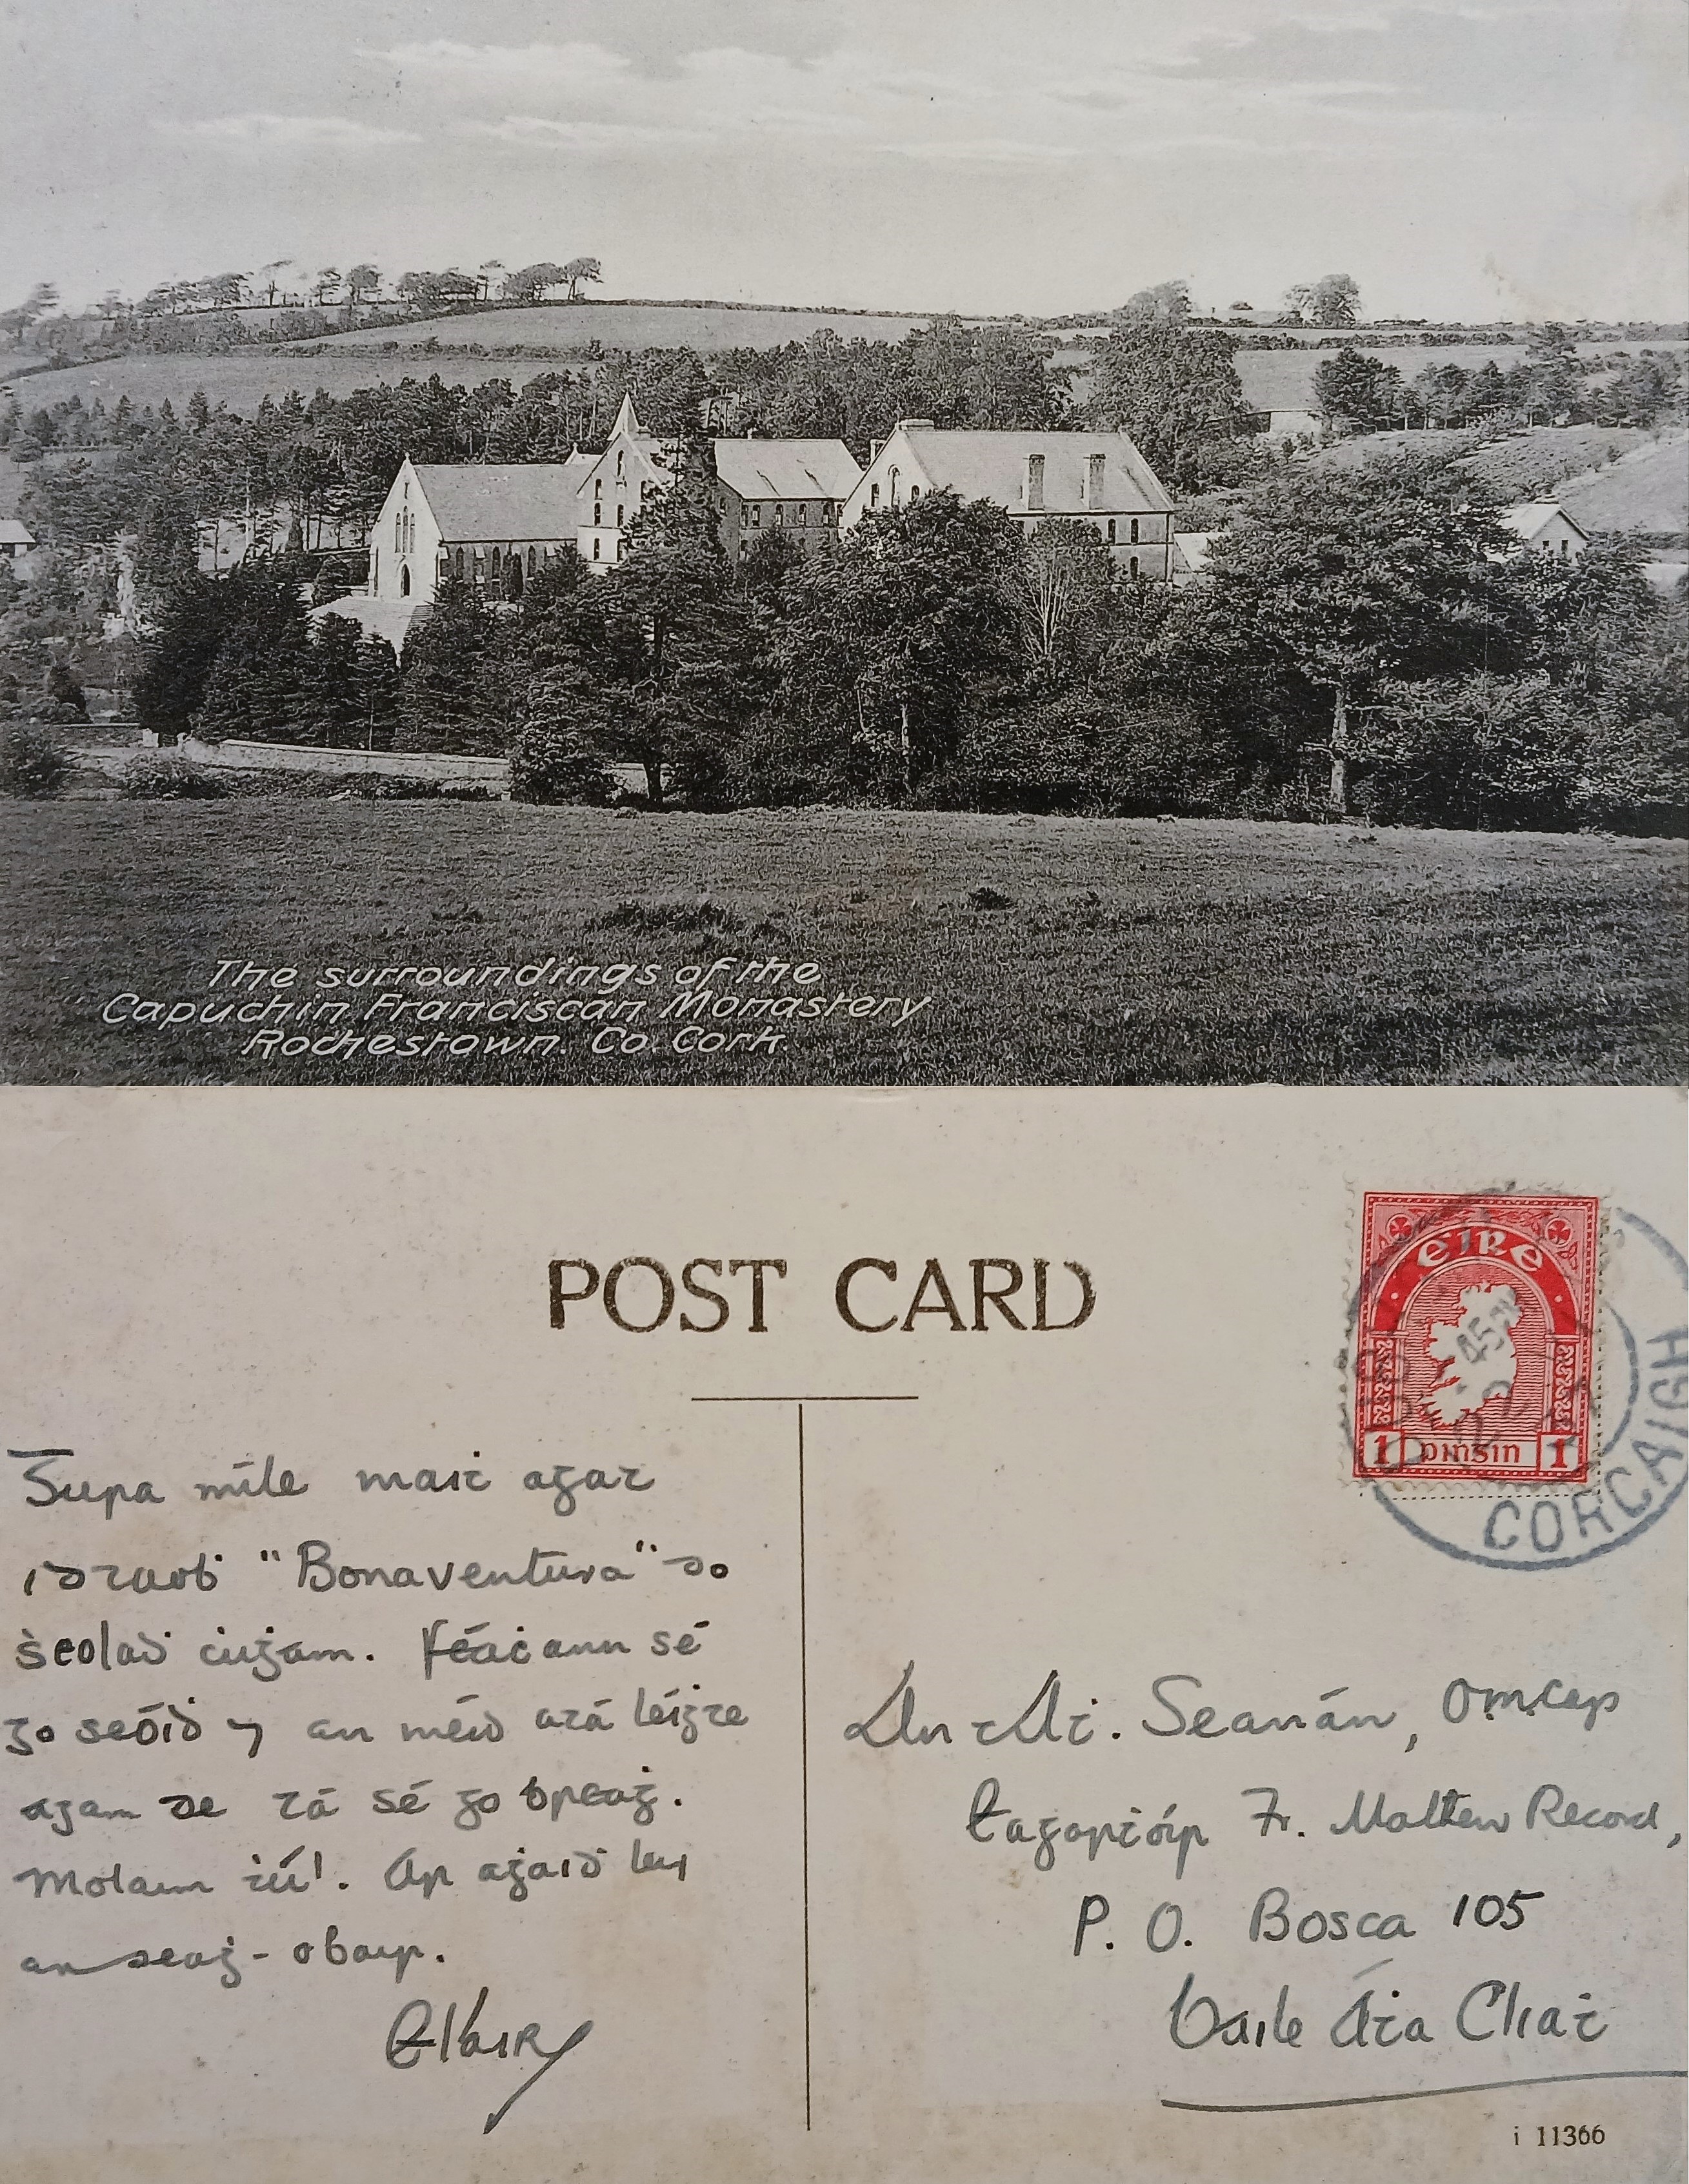 The surroundings of the
Capuchin Franciscan Monastery
Rochestown. Co. Cork.
POST CARD
ÉIRE
1 pinsin 1
CORCAIGH
Gura míle maiṫ agat
i dtaoḃ "Bonaventura" do
ṡeolaḋ ċuġam. Féaċann sé
go seóiḋ ⁊ an méid atá léiġte
agam de tá sé go breaġ.
Molaim ṫú!. Ar aġaiḋ leis
an deaġ-obair.
An tAṫ. Seanán, O.M.Cap
Eagarṫóir Fr. Mathew Record,
P. O. Bosca 105
Baile Áṫa Cliaṫ
i 11366